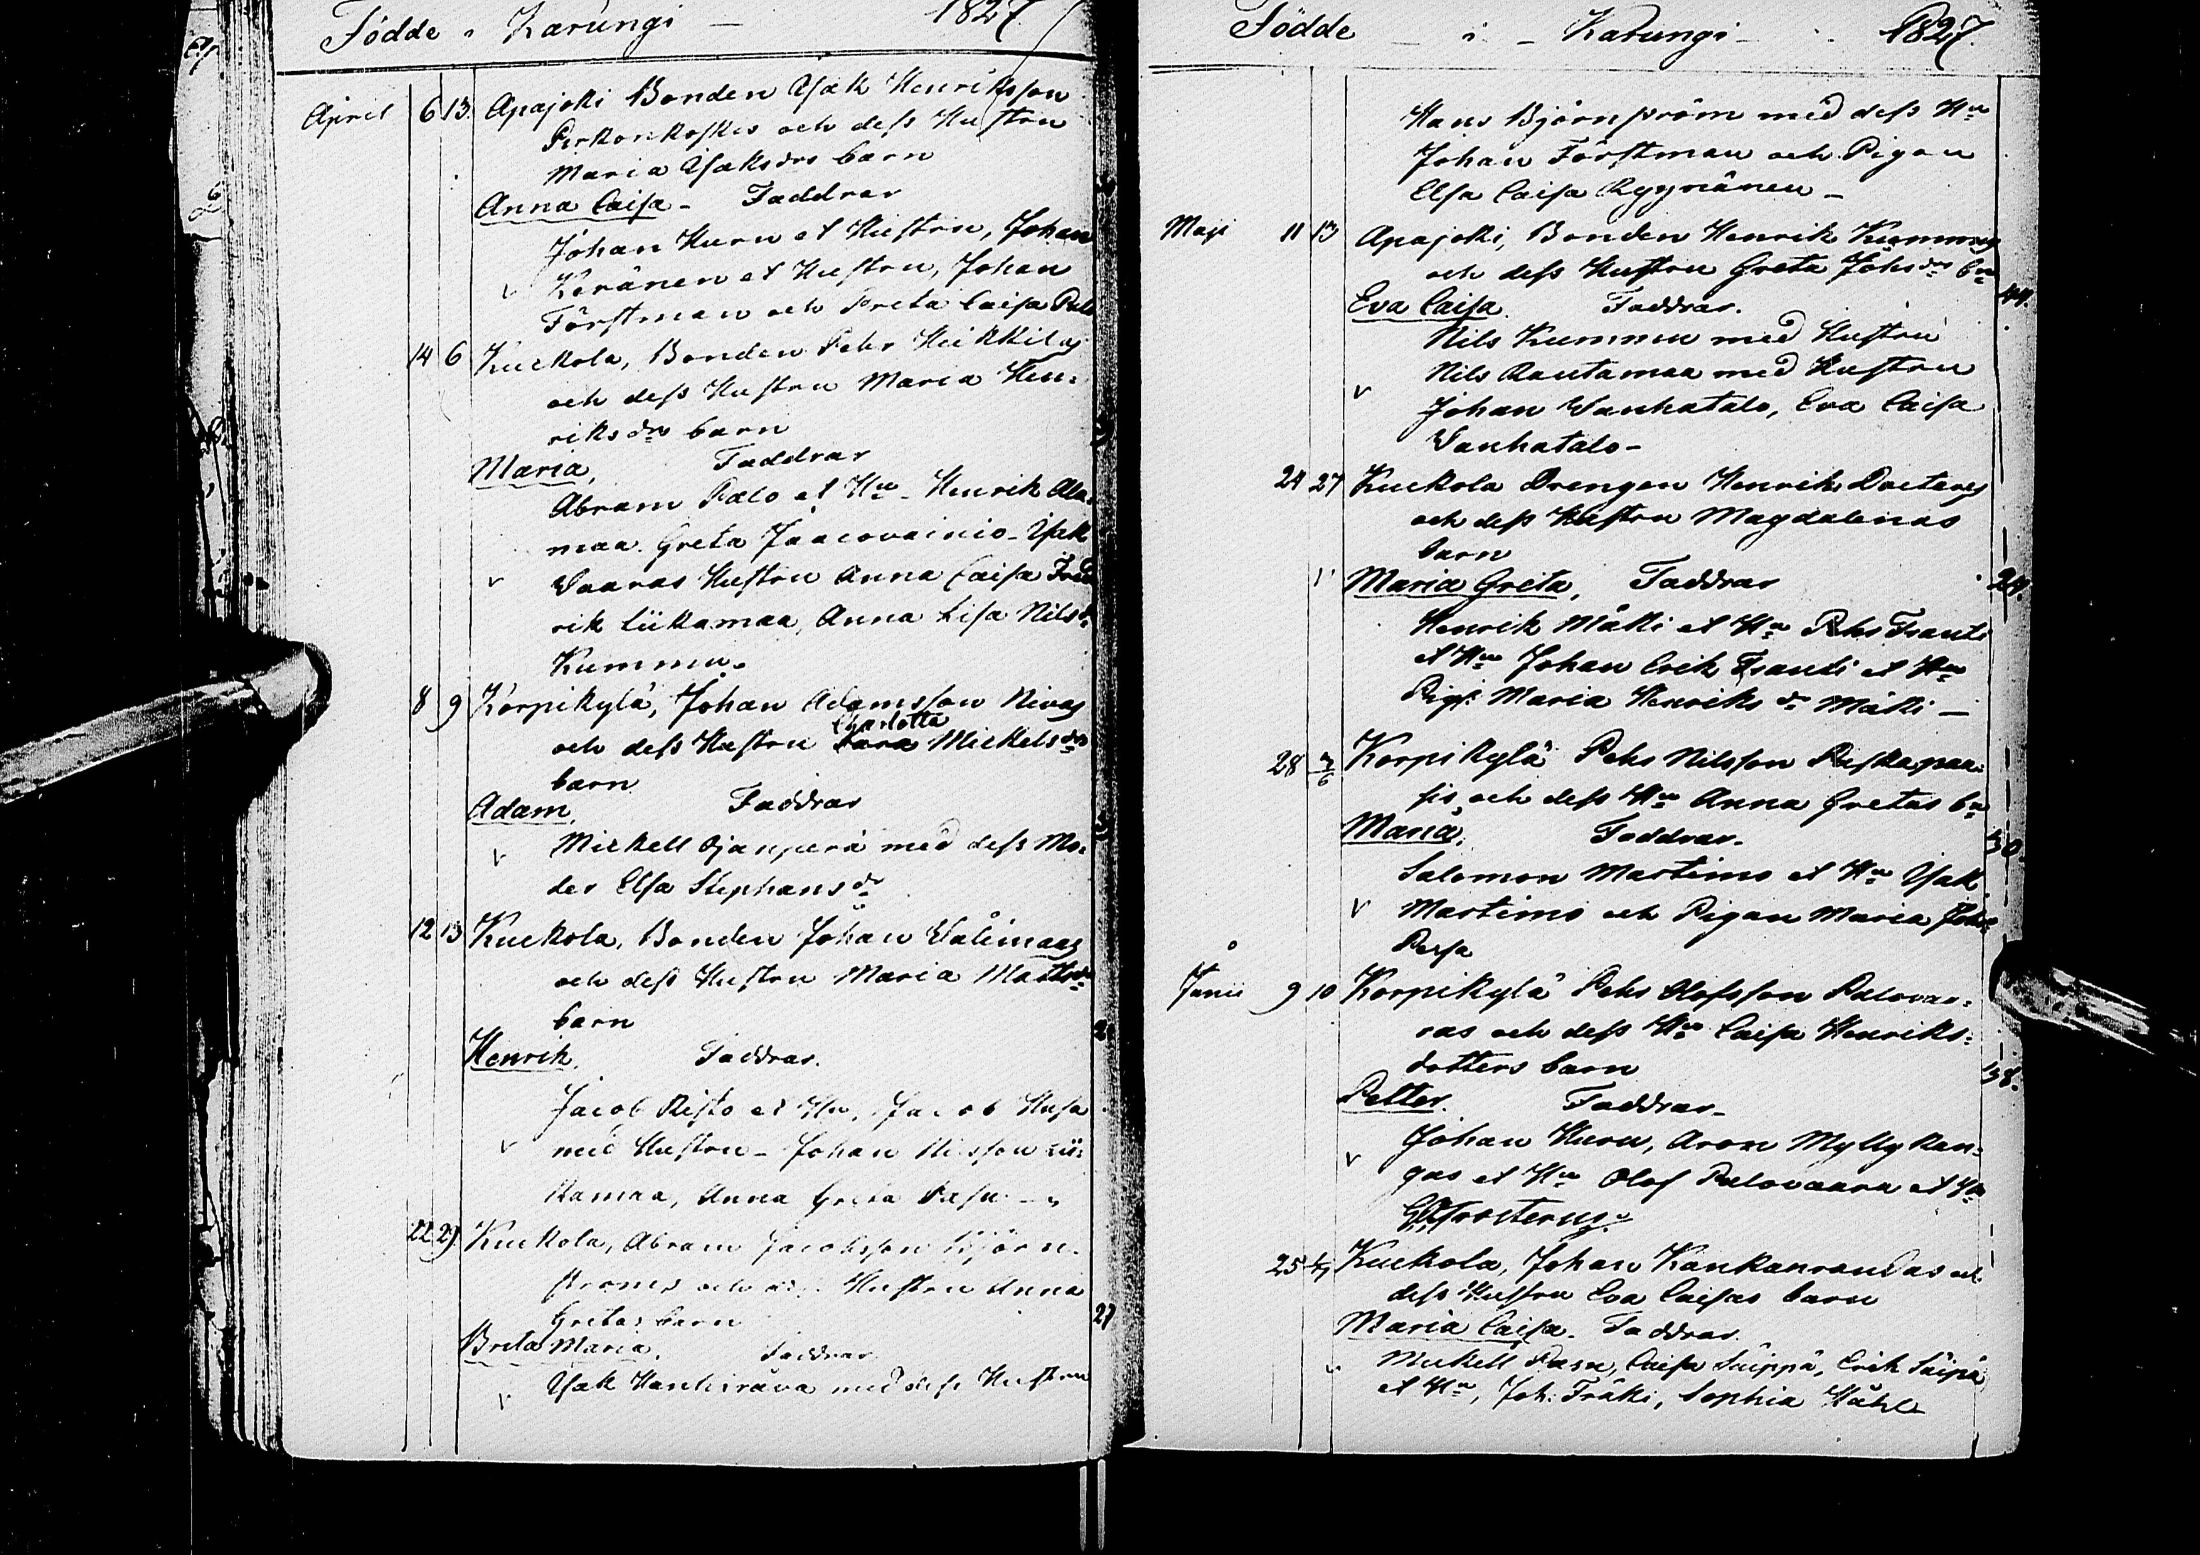 Födde i Karungi — 1827
April 6 13. Apajoki Bonden Isak Henriksson
Pirkonkoskis och dess Hustru
Maria Isaksdrs barn
Anna Caisa - Faddrar
Johan Huru et Hustru, Johan
Keränen et Hustru, Johan
Förstman och Greta Caisa Palo
14 6 Kuckola, Bonden Pehr Heikkilas
och dess Hustru Maria Hen-
riksdrs barn
Maria, Faddrar
Abram Palo et Hu - Henrik Ala-
maa. Greta Jaacovainio - Isak
Vaaras Hustru Anna Caisa Fred
rik Liikamaa, Anna Lisa Nilsdr
Kummu.
8 9 Korpikylä, Johan Adamsson Nivas
Charlotta
och dess Hustru Mickelsdrs
barn
Adam, Faddrar
v Mickell Ojanperä med dess Mo-
der Elsa Stephansdr
12 13 Kuckola, Bonden Johan Välimaas
och dess Hustru Maria Mattsdr
barn
Henrik. Faddrar.
Jacob Risto et Hu, Jacob Husa
v med Hustru - Johan Nilsson Lii-
kamaa, Anna Greta
22 29 Kuckola, Abram Jacobsson Björn-
ströms och dess Hustru Anna
Gretas barn 27
Brita Maria. Faddrar
v Isak Hankiväva med dess Hustru
Födde — i — Karungi — 1827.
Hans Björnström med dess Hu
Johan Förstman och Pigan
Elsa Caisa Ryynänen -
Maji 11 13 Apajoki, Bonden Henrik Kummus
och dess Hustru Greta Johsdrs bn
Eva Caisa. Faddrar. 44.
Nils Kummu med Hustru
Nils Rautamaa med Hustru
v Johan Vanhatalo, Eva Caisa
Vanhatalo -
24 27 Kuckola Drengen Henrik
och dess Hustru Magdalenas
barn
v Maria Greta, Faddrar 24.
Henrik Mäki et Hu Pehr Franti
et Hu Johan Erik et Hu
Pig. Maria Henriksdr Mäki —
28 3/6 Korpikylä Pehr Nilsson Ruskapaa-
sis och dess Hu Anna Gretas bn
Maria. Faddrar. 30.
Salomon Martimo et Hu Isak
v Martimo och Pigan Maria Johsdr
Junii 9 10 Korpikylä Pehr Olofsson Palovaa-
ras och dess Hu Caisa Henriks-
dotters barn 38.
Petter. Faddrar -
Johan Huru, Aron Myllykan-
v gas et Hu Olof Palovaara et Hu
25 Kuckola, Johan Kankaanrandas och
dess Hustru Eva Caisas barn
Maria Caisa. Faddrar.
Mickell Caisa Säippä, Erik Säipä
et Hu, Joh: Fräki, Sophia